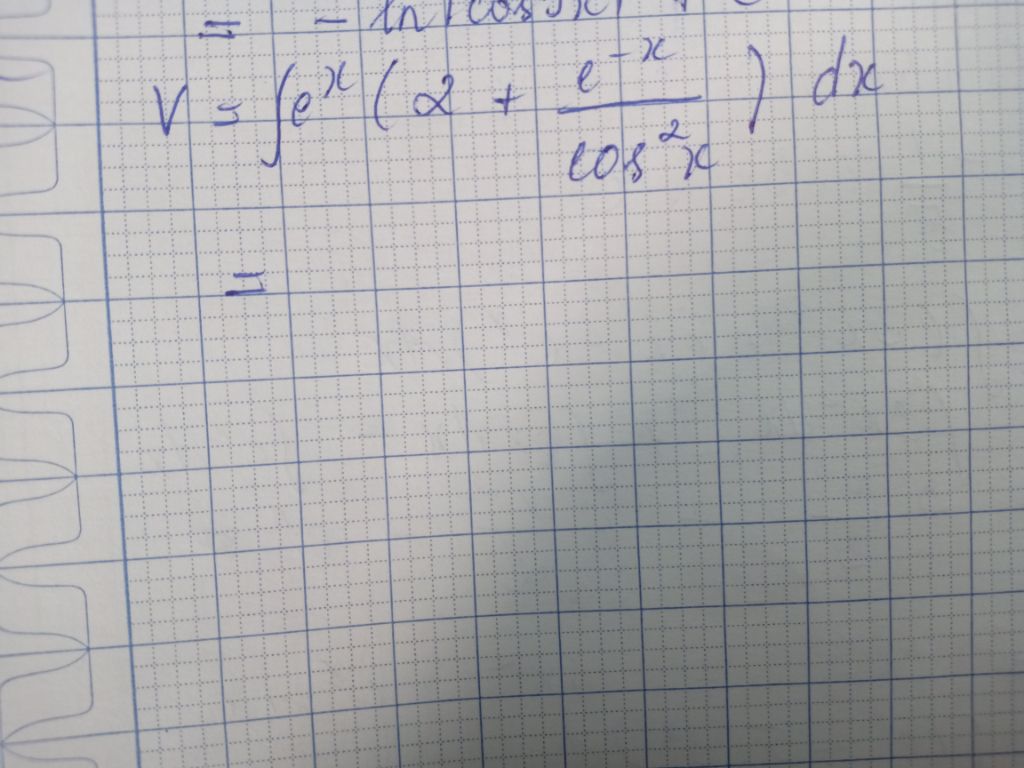 = - ln|cos x| + c
V = ∫ e^x ( 2 + e^-x / cos^2 x ) dx
=